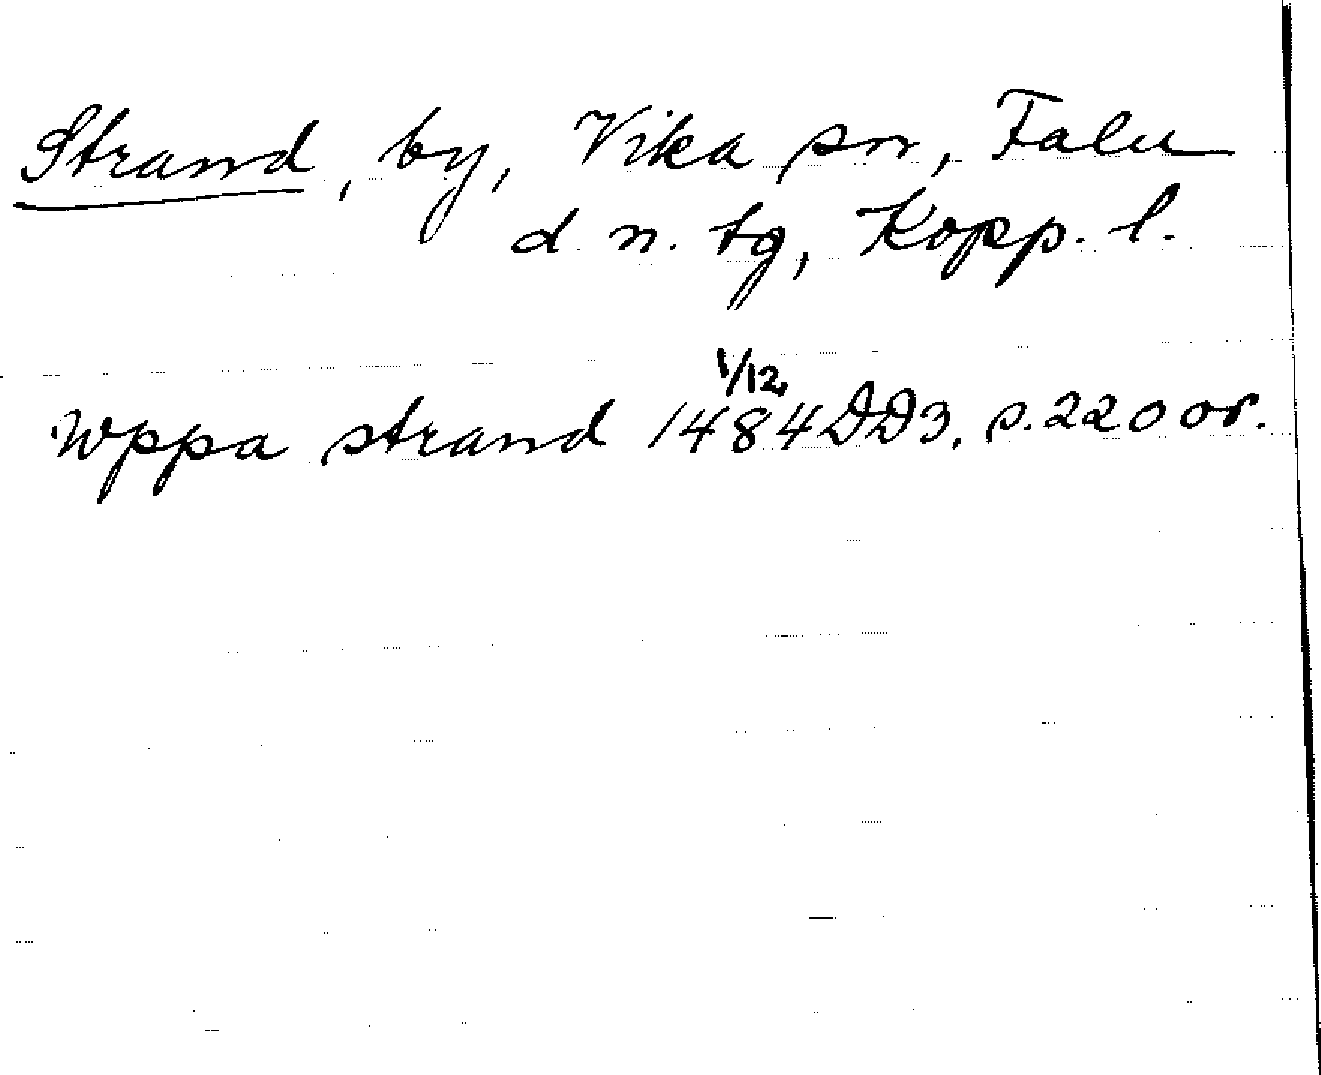 Strand, by, Vika sn, Falu
d. n. tg, Kopp. l.
1/12
Wppa strand 1484 DD3, s. 220 or.